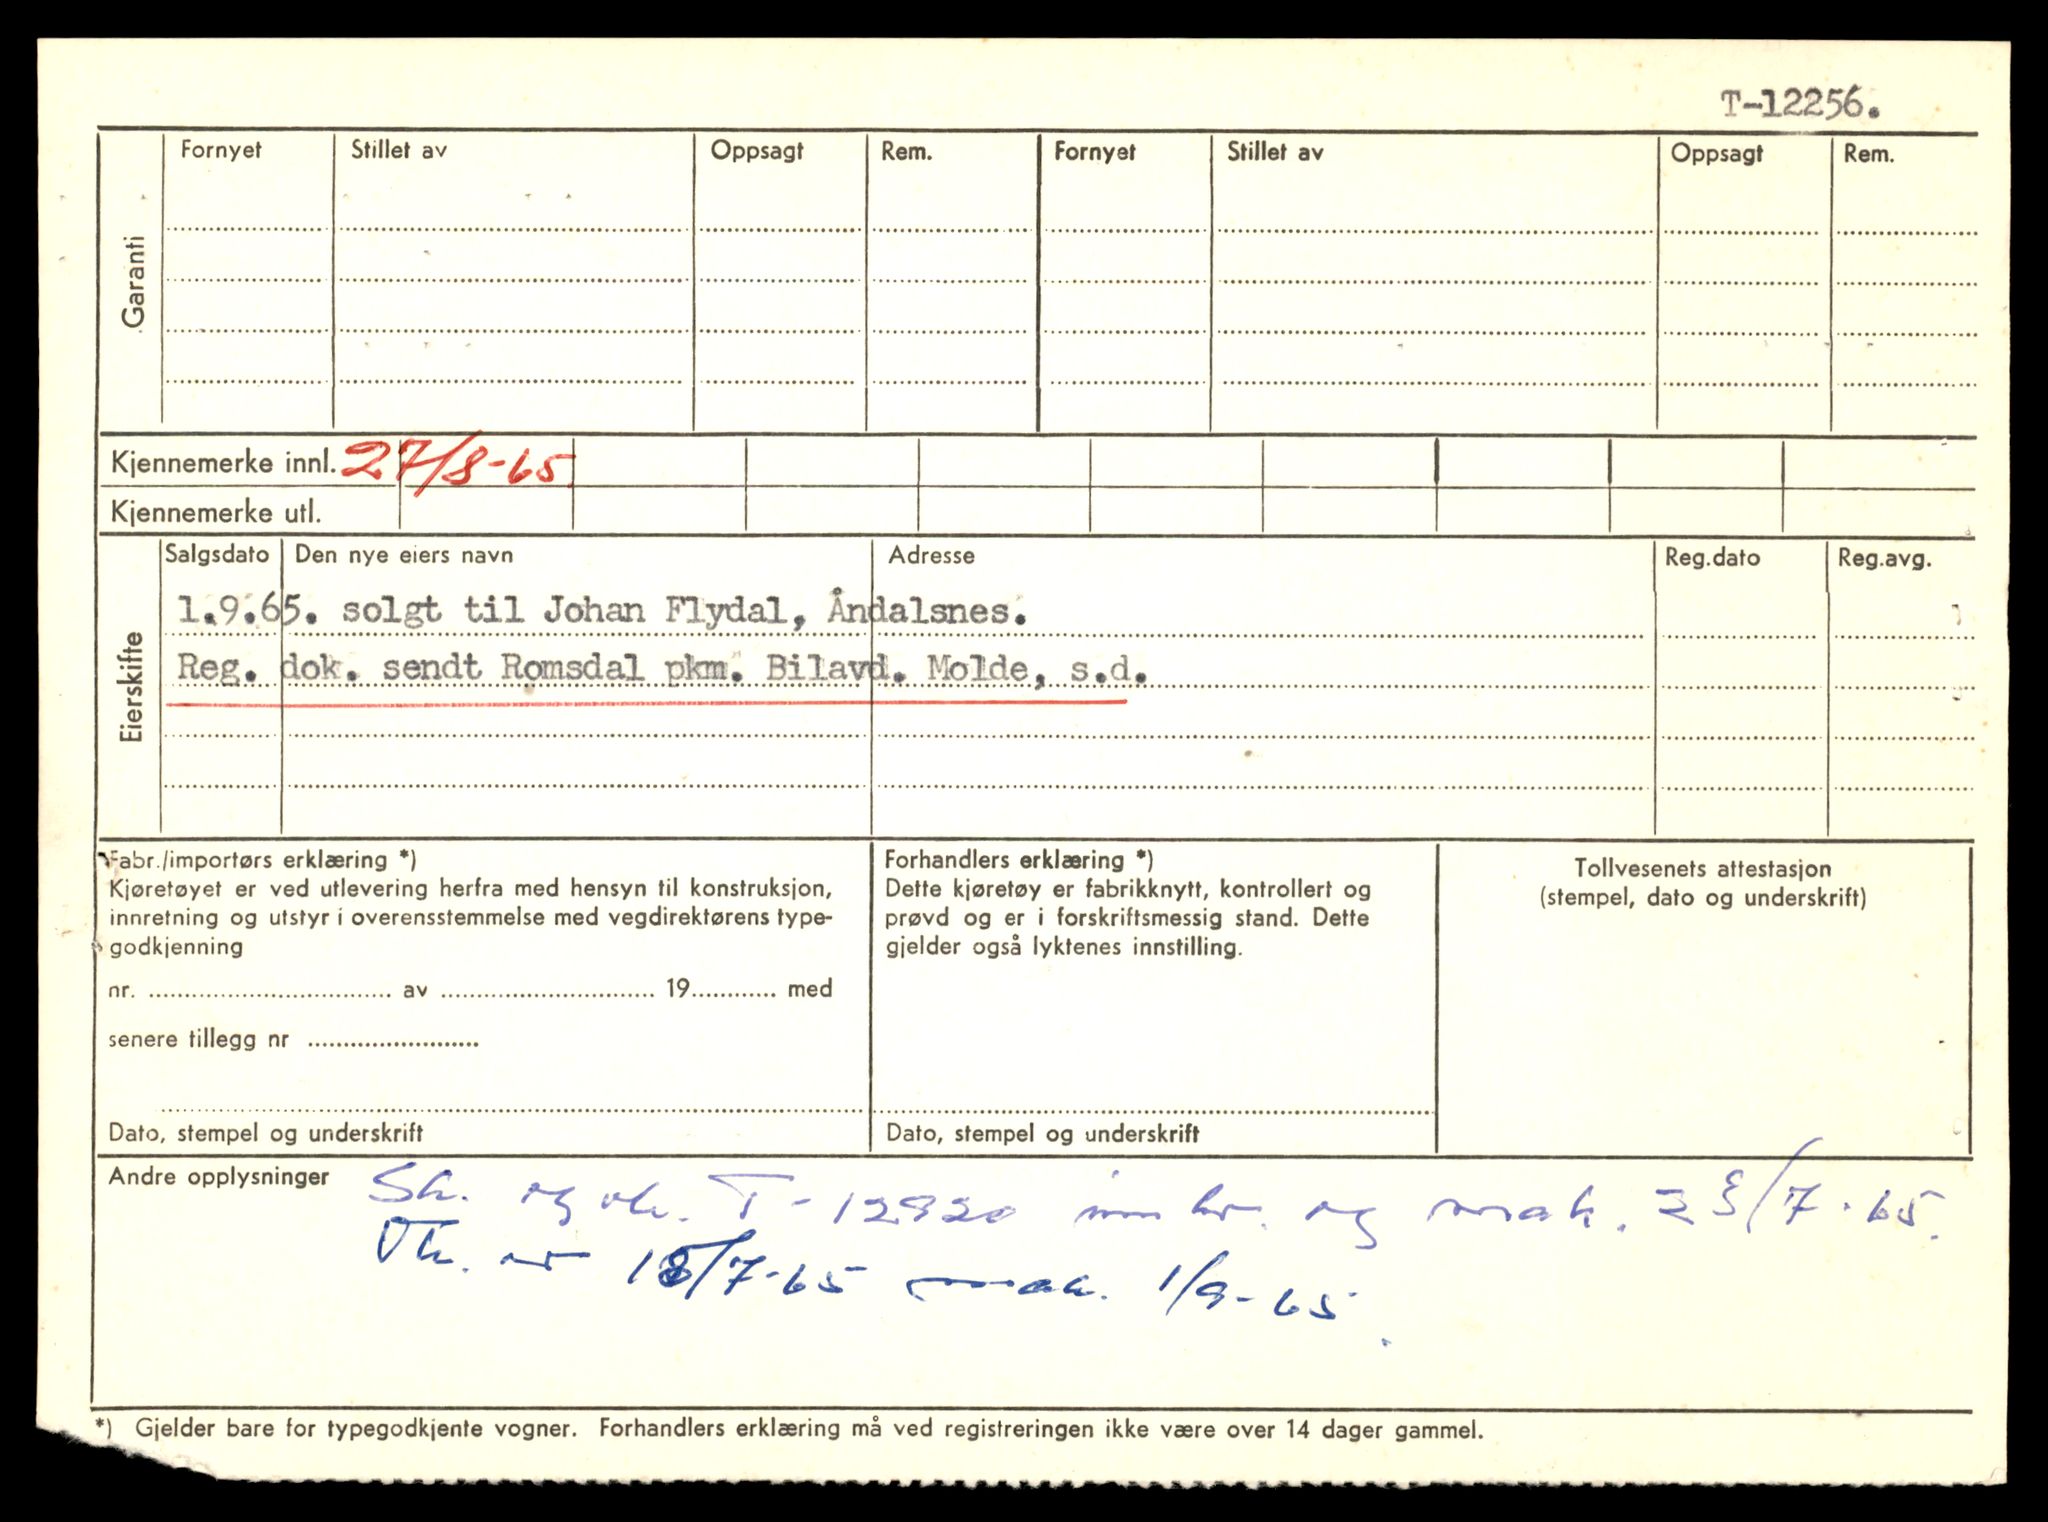 T-12256.
Fornyet Stillet av Oppsagt Rem. Fornyet Stillet av Oppsagt Rem.
Garanti
Kjennemerke innl. 27/8-65.
Kjennemerke utl.
Eierskifte
Salgsdato Den nye eiers navn Adresse Reg.dato Reg.avg.
1.9.65. solgt til Johan Flydal, Åndalsnes.
Reg. dok. sendt Romsdal pkm. Bilavd. Molde, s.d.
Fabr./importørs erklæring *)
Kjøretøyet er ved utlevering herfra med hensyn til konstruksjon,
innretning og utstyr i overensstemmelse med vegdirektørens type-
godkjenning
nr. .................................. av .............................. 19............ med
senere tillegg nr ........................
Dato, stempel og underskrift
Forhandlers erklæring *)
Dette kjøretøy er fabrikknytt, kontrollert og
prøvd og er i forskriftsmessig stand. Dette
gjelder også lyktenes innstilling.
Dato, stempel og underskrift
Tollvesenets attestasjon
(stempel, dato og underskrift)
Andre opplysninger
og T-12920 og mak. /7-65.
/7-65 mak. 1/9-65.
*) Gjelder bare for typegodkjente vogner. Forhandlers erklæring må ved registreringen ikke være over 14 dager gammel.